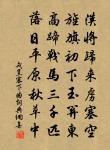 漢將歸來虜塞空
旌旗初下玉關東
高蹄戰馬三千匹
落日平原秋草中
戎昱塞下曲